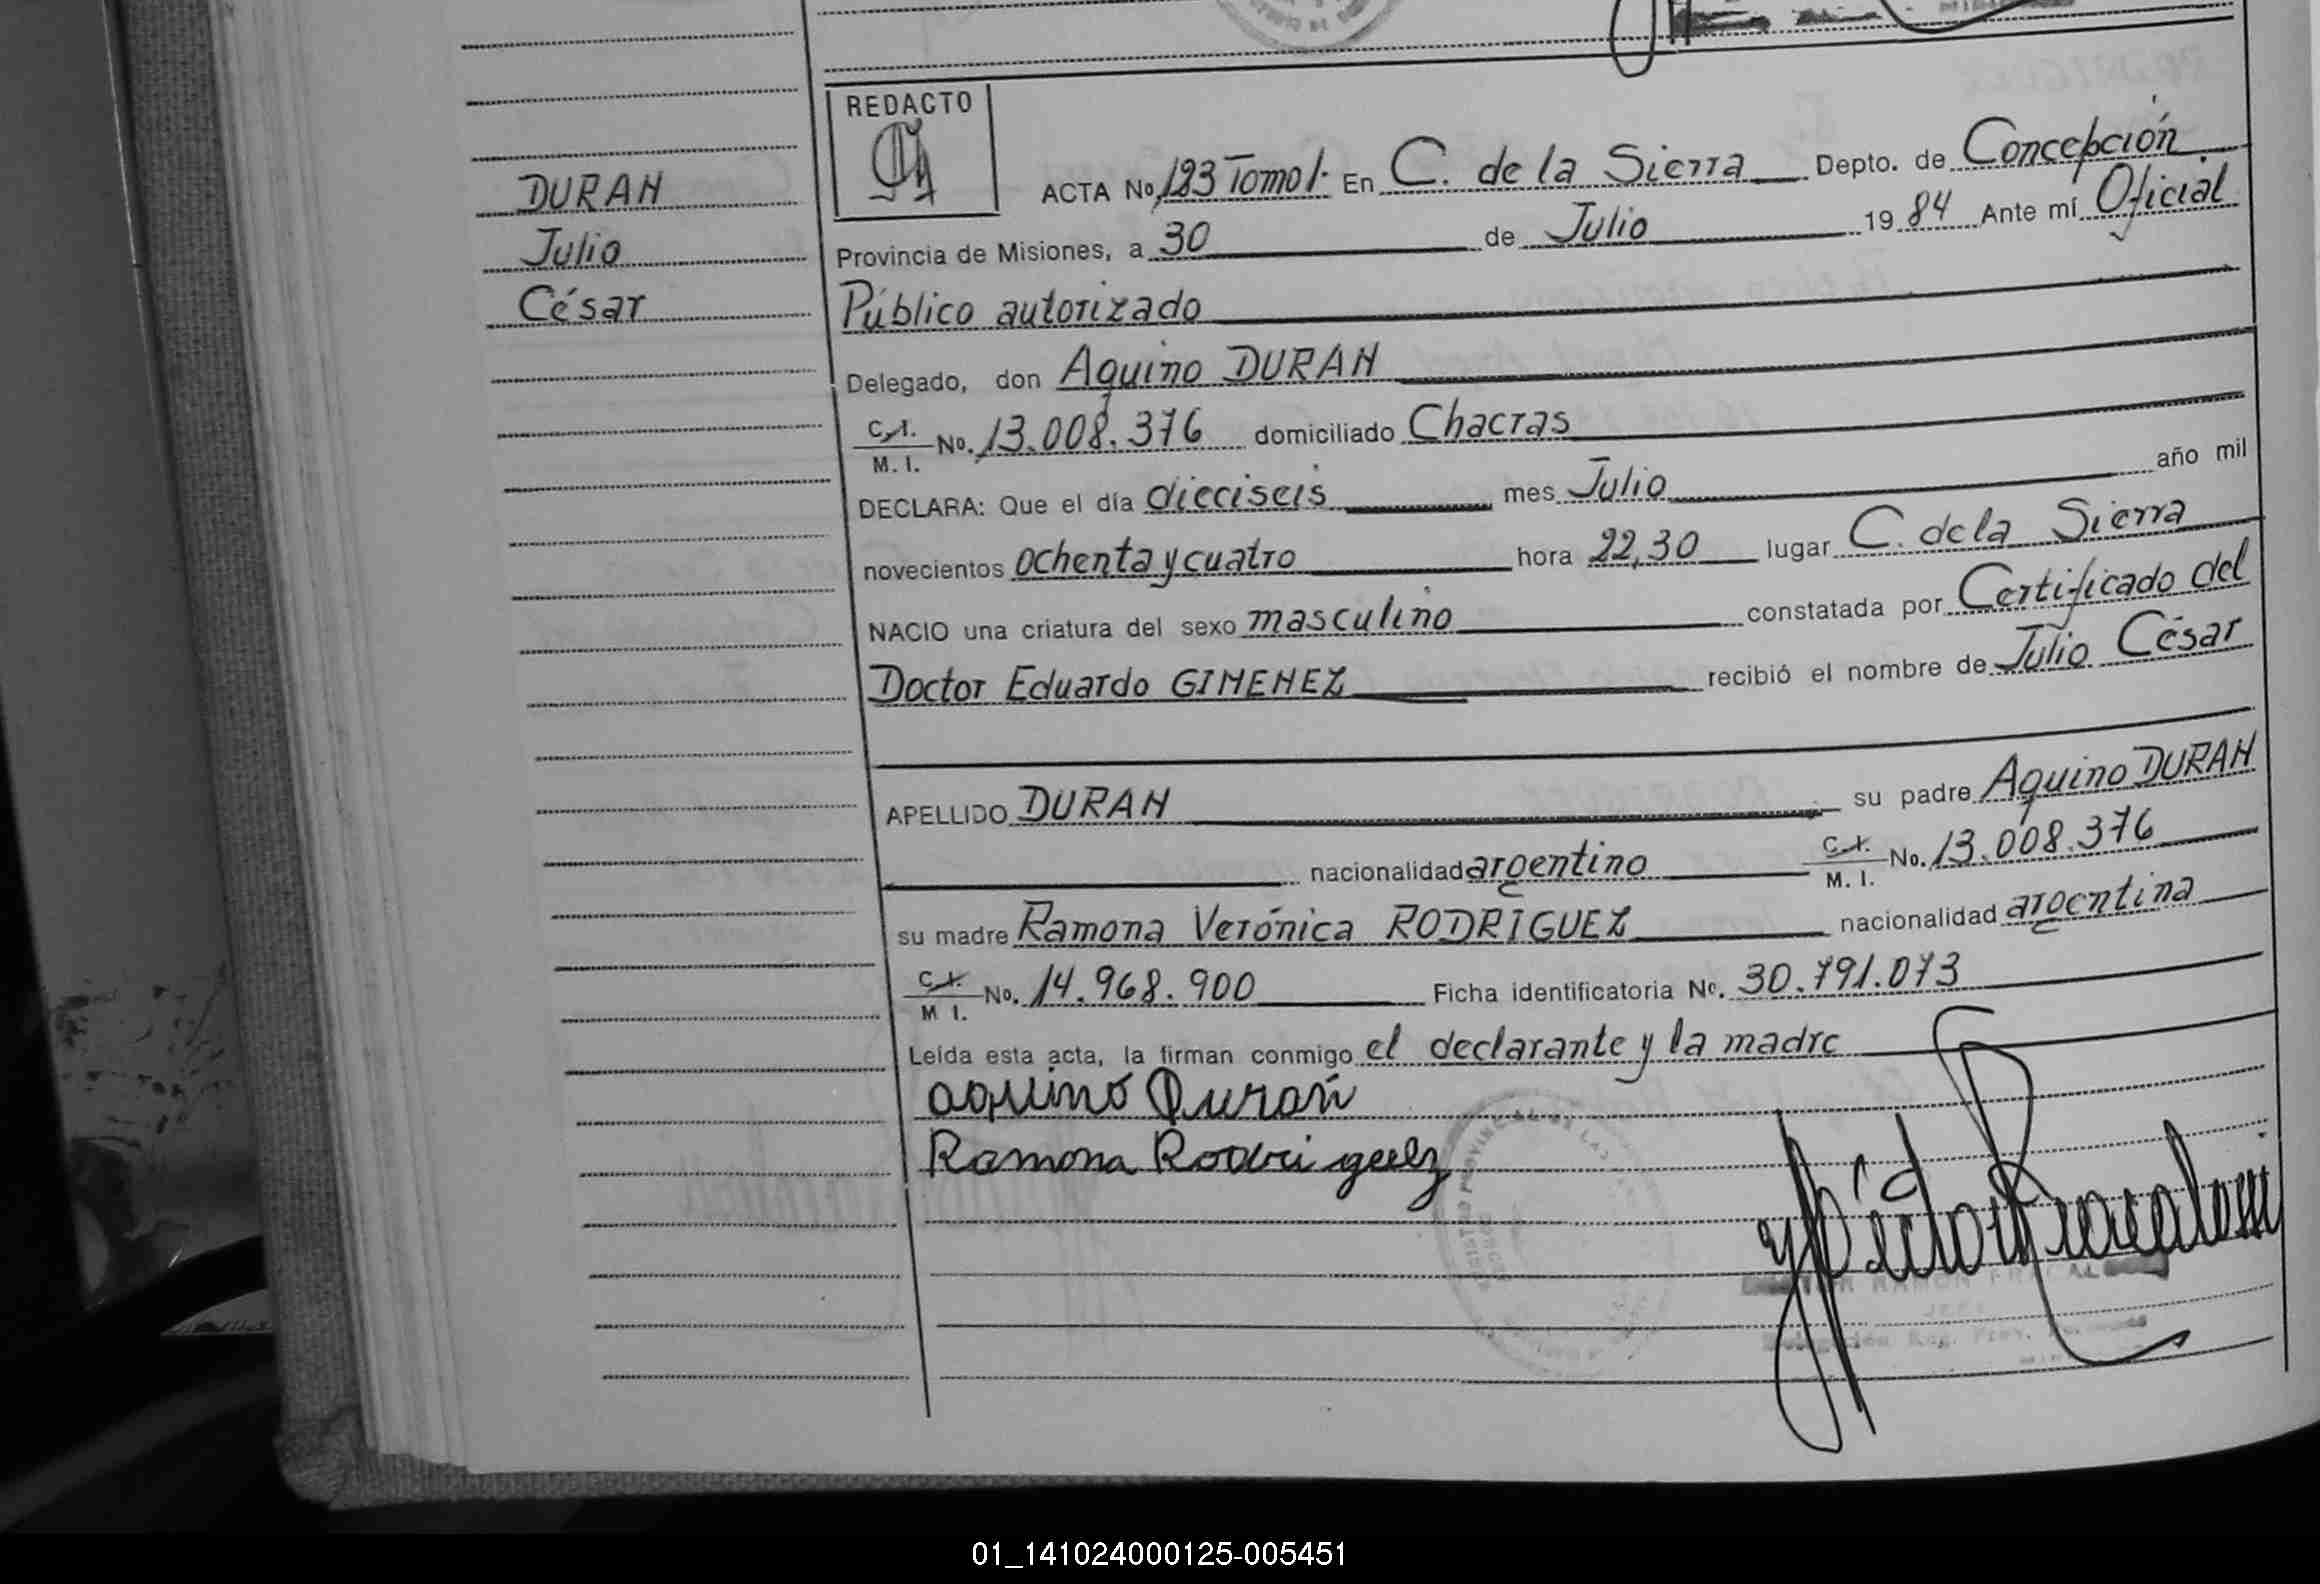 DURAN
Julio
César
REDACTO
ACTA No 123 Tomo I. En C. de la Sierra Depto. de Concepción
Provincia de Misiones, a 30 de Julio 1984 Ante mí Oficial
Público autorizado
Delegado, don Aquino DURAN
C.I. M. I. No. 13.008.376 domiciliado Chacras
DECLARA: Que el día dieciseis mes Julio año mil
novecientos ochenta y cuatro hora 22,30 lugar C. de la Sierra
NACIO una criatura del sexo masculino constatada por Certificado del
Doctor Eduardo GIMENEZ recibió el nombre de Julio César
APELLIDO DURAN su padre Aquino DURAN
nacionalidad argentino C.I. M. I. No. 13.008.376
su madre Ramona Verónica RODRIGUEZ nacionalidad argentina
C.I. M I. No. 14.968.900 Ficha identificatoria No. 30.791.073
Leída esta acta, la firman conmigo el declarante y la madre
aquino Duran
Ramona Rodriguez
01_141024000125-005451